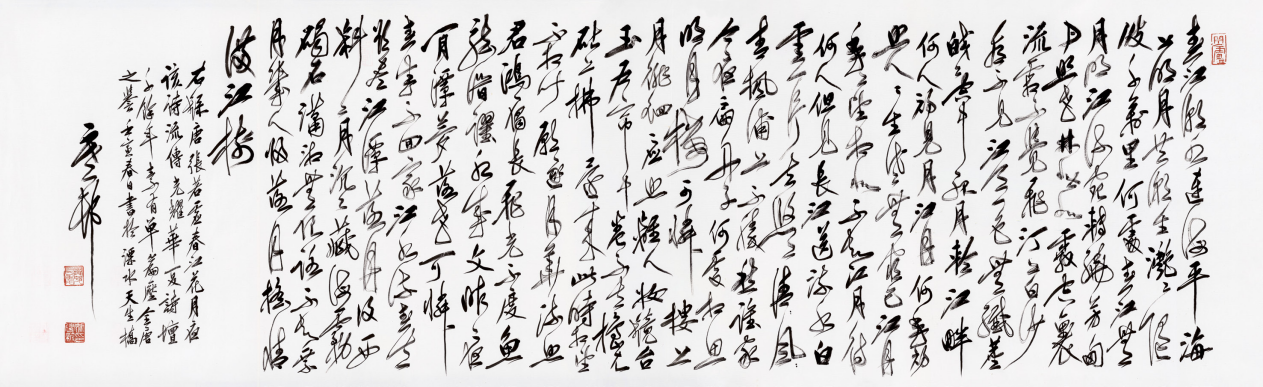 春江潮水連海平海
上明月共潮生灩灩隨
波千萬里何處春江無
月明江流宛轉繞芳甸
月照花林皆似霰空裏
流霜不覺飛汀上白沙
看不見江天一色無纖塵
皎皎空中孤月輪江畔
何人初見月江月何年初
照人人生代代無窮已江月
年年望相似不知江月待
何人但見長江送流水白
雲一片去悠悠
青楓浦上不勝愁誰家
今夜扁舟子何處相思
明月樓可憐樓上
月徘徊應照離人妝鏡台
玉戶簾中卷不去搗衣
砧上拂還來此時相望
不相聞願逐月華流照
君鴻雁長飛光不度魚
龍潛躍水成文昨夜
閒潭夢落花可憐
春半不回家江水流春去
欲盡江潭落月復西
斜斜月沉沉藏海霧
碣石瀟湘無限路不知乘
月幾人歸落月搖情
滿江樹
右錄唐張若虛春江花月夜
該詩流傳光耀華夏詩壇
千餘年素有單篇壓全唐
之譽壬寅春日書於溧水天生橋